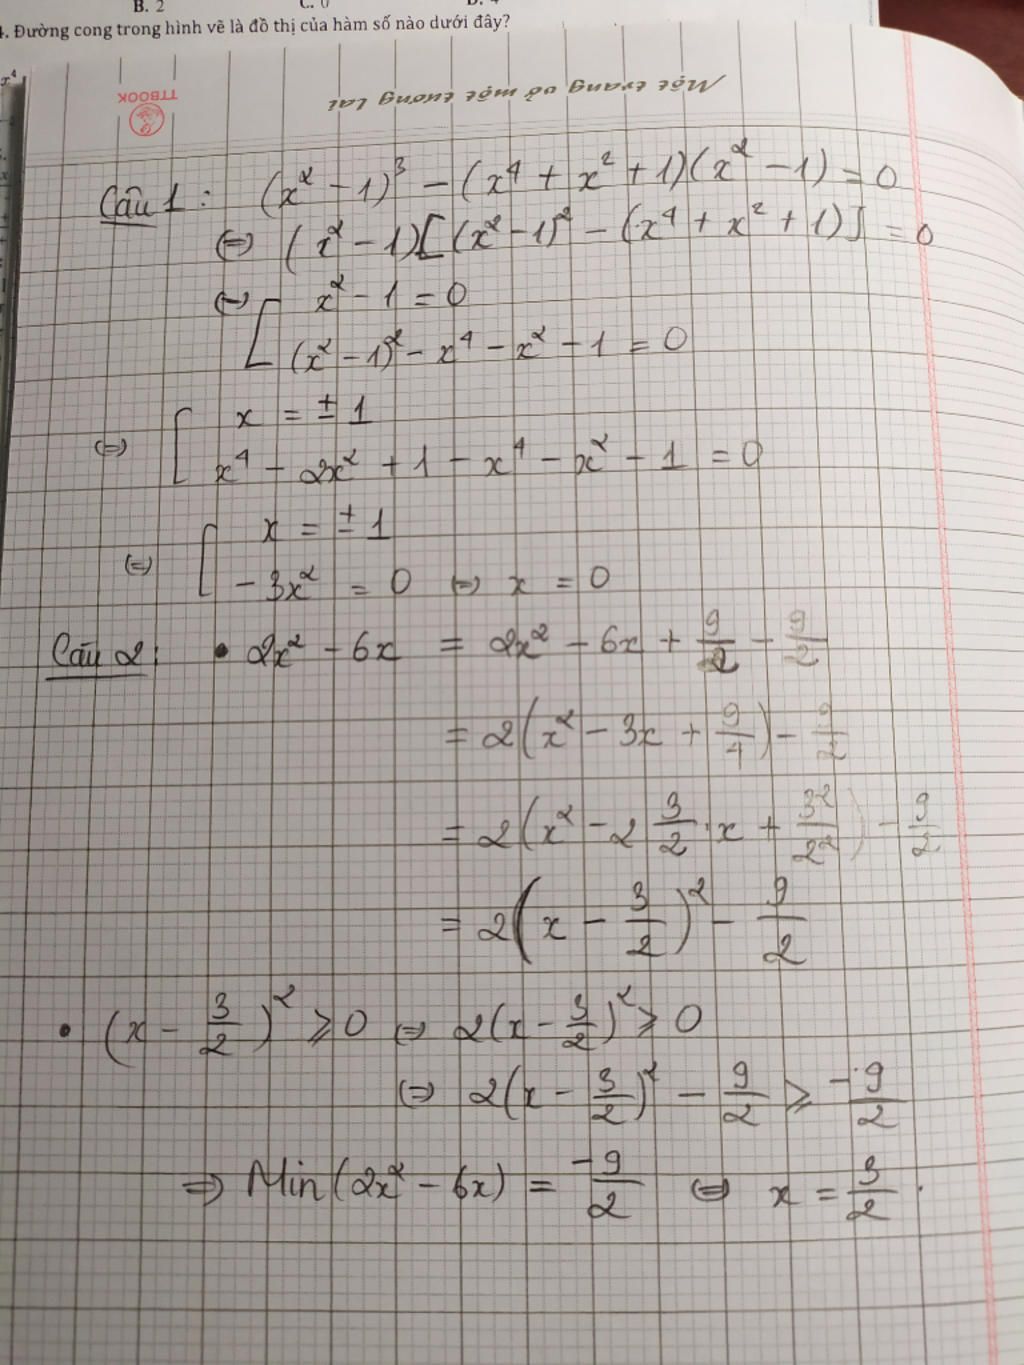 B. 2 C. 0
4. Đường cong trong hình vẽ là đồ thị của hàm số nào dưới đây?
x⁴
Một trang vở một tương lai
TTBOOK
Câu 1 : (x² - 1)³ - (x⁴ + x² + 1)(x² - 1) = 0
(=) (x² - 1)[(x² - 1)² - (x⁴ + x² + 1)] = 0
(=) [ x² - 1 = 0
(x² - 1)² - x⁴ - x² - 1 = 0
(=) [ x = ± 1
x⁴ - 2x² + 1 - x⁴ - x² - 1 = 0
(=) [ x = ± 1
- 3x² = 0 (=) x = 0
Câu 2 : • 2x² - 6x = 2x² - 6x + 9/2 - 9/2
= 2(x² - 3x + 9/4) - 9/2
= 2(x² - 2 3/2 . x + 3²/2²) - 9/2
= 2(x - 3/2)² - 9/2
• (x - 3/2)² ⩾ 0 (=) 2(x - 3/2)² ⩾ 0
(=) 2(x - 3/2)² - 9/2 ⩾ -9/2
=> Min (2x² - 6x) = -9/2 (=) x = 3/2 .